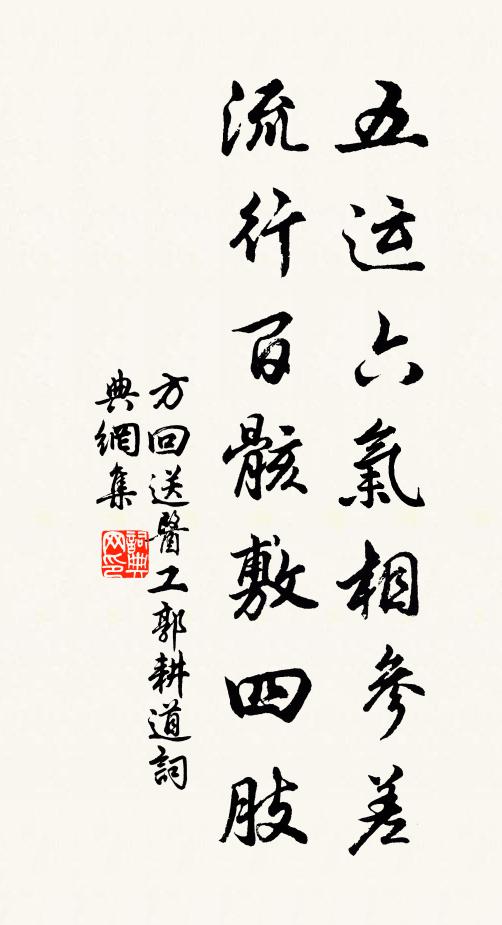 五运六氣相參差
流行百骸敷四肢
方回送醫工郭耕道詞
典網集
詞典
网印